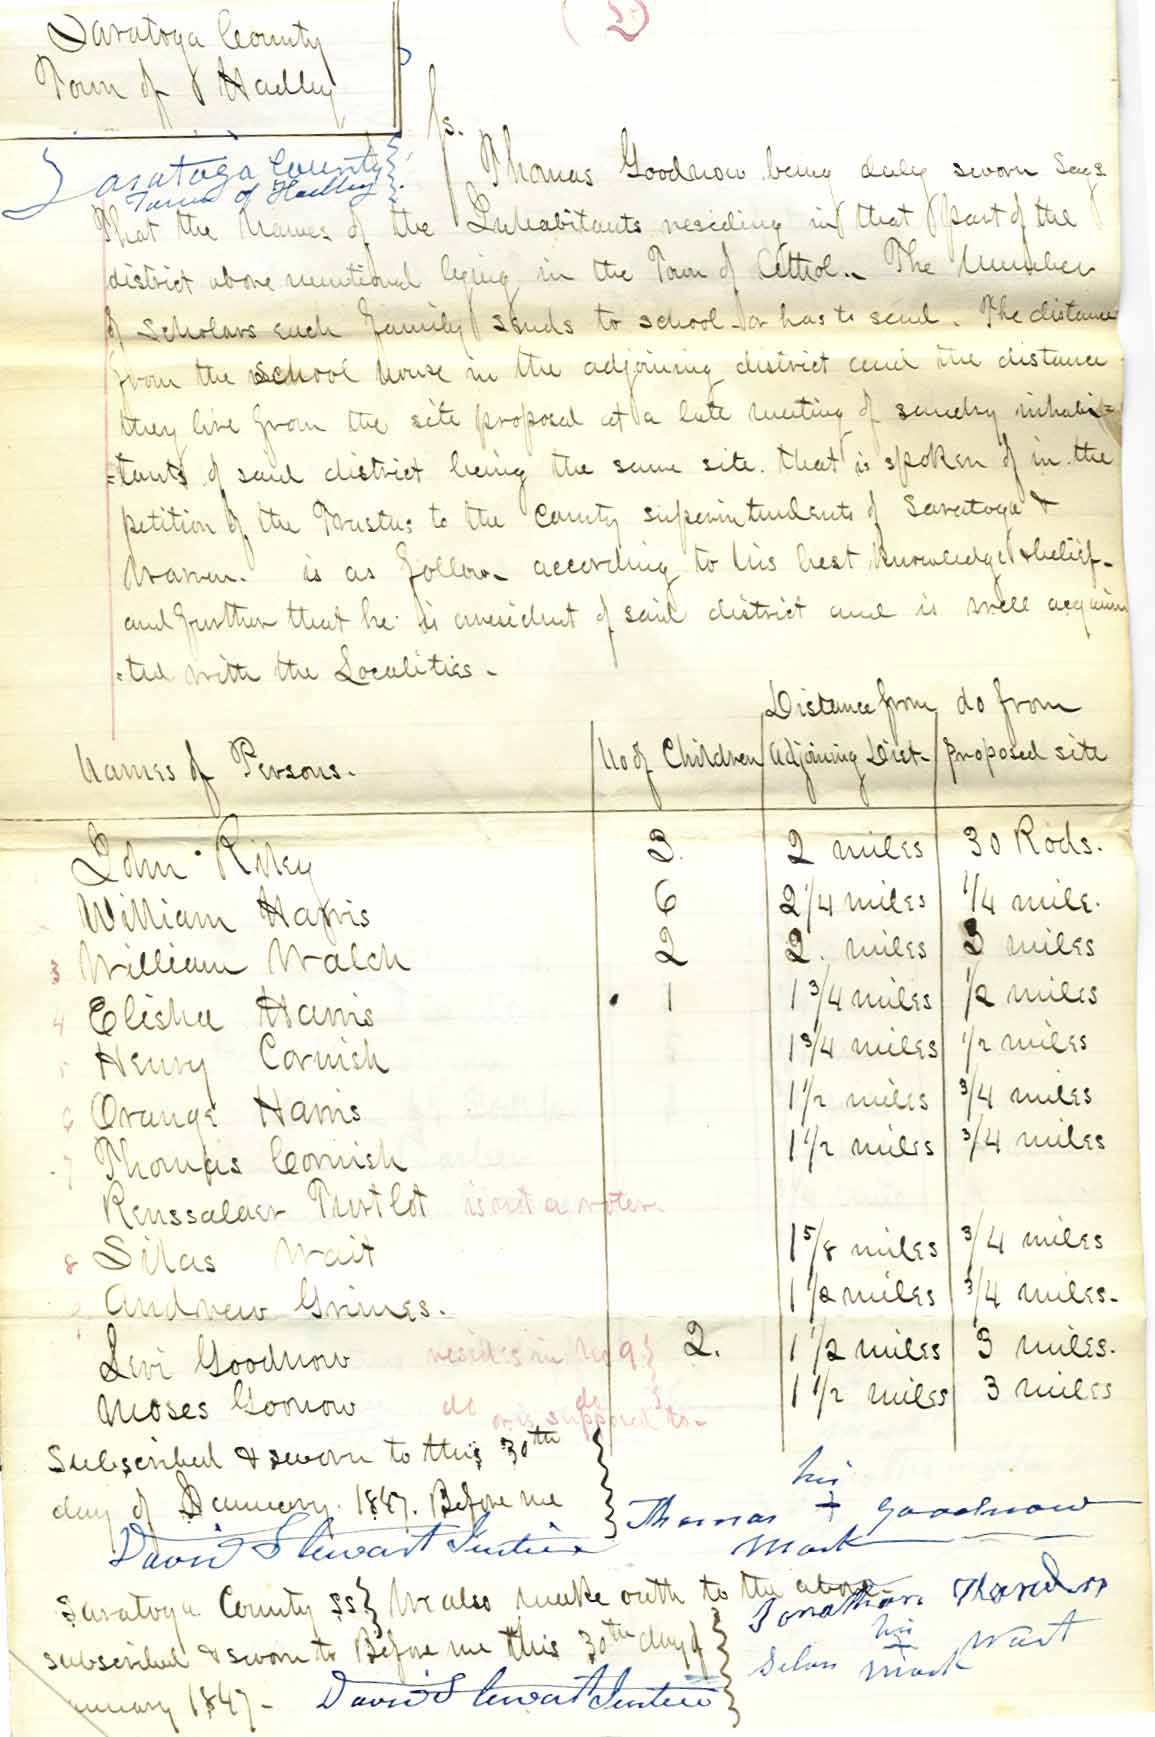 (2)
Saratoga County
Town of Hadley
ss.
Saratoga County
Town of Hadley
Thomas Goodnow being duly sworn Says
That the Names of the Inhabitants residing in that part of the
district above mentioned lying in the Town of Athol. The Number
of Scholars each family sends to school or has to send. The distance
from the school house in the adjoining district and the distance
they live from the site proposed at a late meeting of sundry inhabi=
=tants of said district being the same site that is spoken of in the
petition of the Trustees to the County superintendents of Saratoga &
Warren. is as follow- according to his best knowledge & belief-
and further that he is a resident of said district and is well acquain
=ted with the Localities-
Names of Persons. No of Children Distance from Adjoining Dist- do from proposed site
John Riley 3. 2 miles 30 Rods.
William Harris 6 2 1/4 miles 1/4 mile.
3 William Walch 2 2. miles 3 miles
4 Elisha Harris 1 1 3/4 miles 1/2 miles
Henry Cornish 1 3/4 miles 1/2 miles
6 Orange Harris 1 1/2 miles 3/4 miles
7 Thomas Cornish 1 1/2 miles 3/4 miles
Renssalaer Turtlot is not a voter.
8 Silas Wait 1 5/8 miles 3/4 miles
Andrew Grimes. 1 1/2 miles 3/4 miles-
Levi Goodnow resides in No 9 2. 1 1/2 miles 3 miles.
Moses Goonow do do 1 1/2 miles 3 miles
or is supposed to-
Subscribed & sworn to this 30th
day of January. 1847. Before me
David Stewart Justice
his
Thomas + Goodnow
mark
Saratoga County ss We also make outh to the above-
subscribed & sworn to Before me this 30th day of
January 1847- David Stewart Justice
Jonathan
his
Silas + Wait
mark